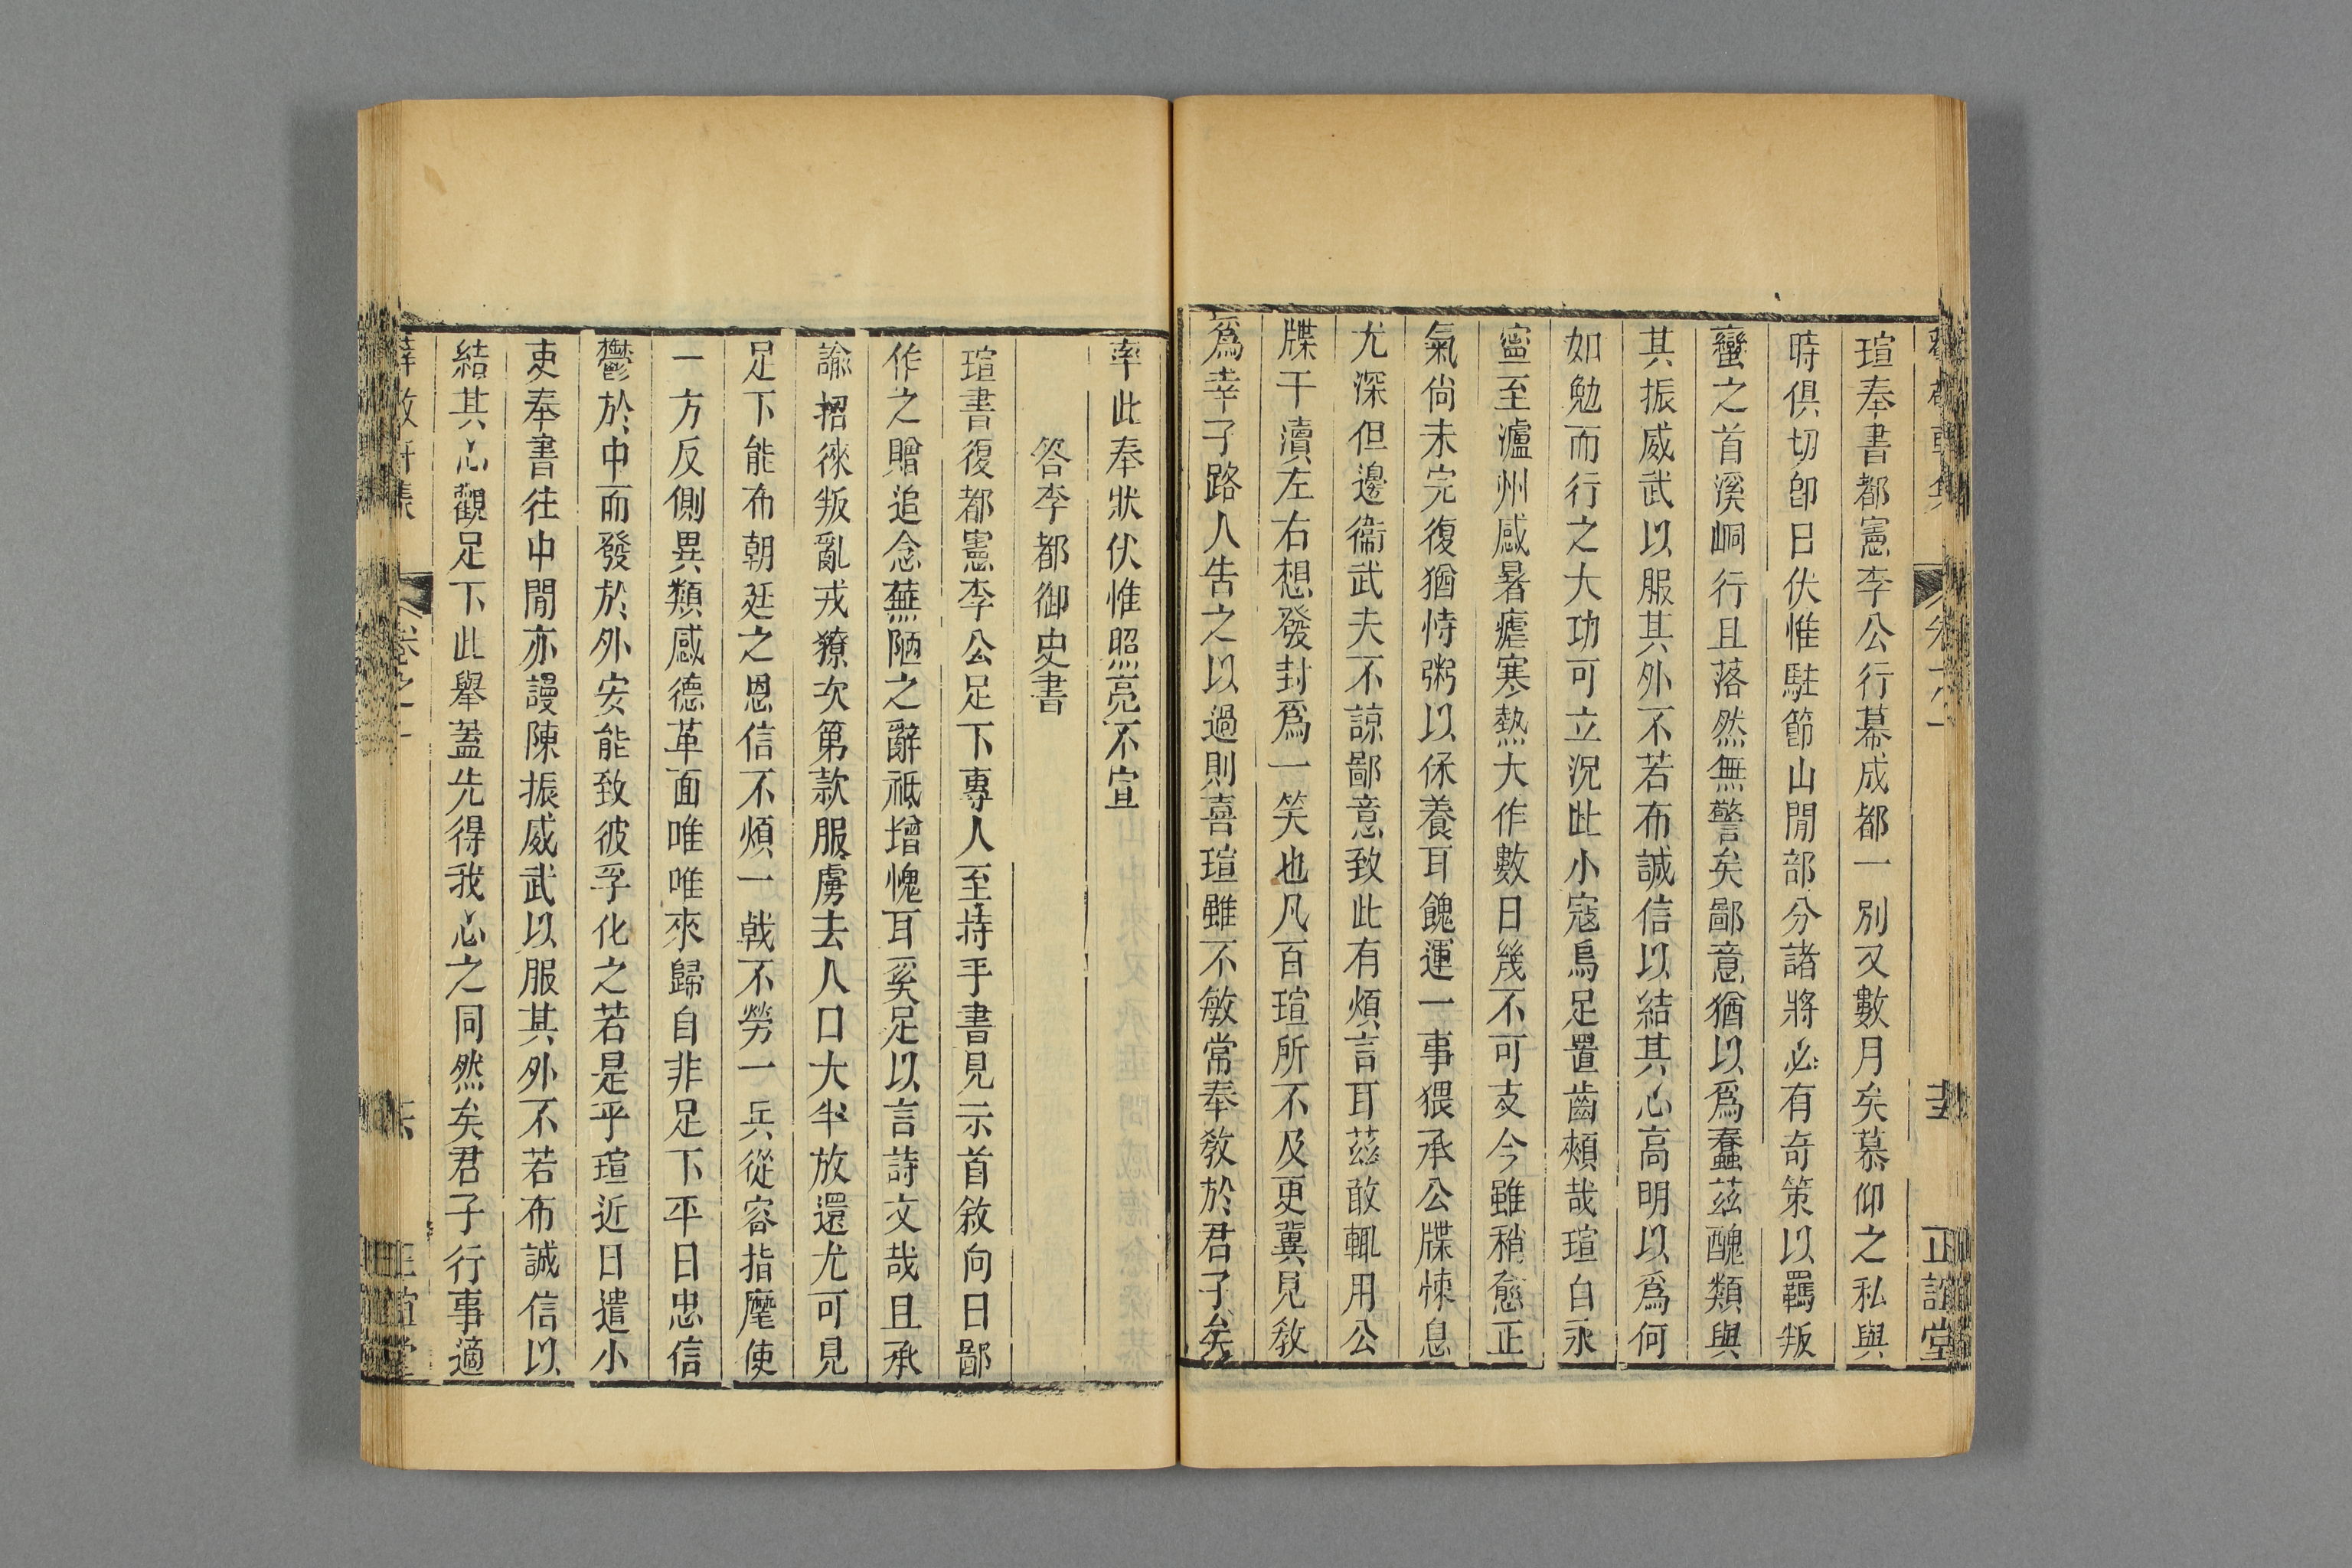 瑄奉書都憲李公行幕成都一別又數月矣慕仰之私與
時俱切卽日伏惟駐節山閒部分諸將必有奇策以羈叛
蠻之首溪峒行且落然無警矣鄙意猶以爲蠢茲醜類與
其振威武以服其外不若布誠信以結其心高明以爲何
如勉而行之大功可立況此小寇烏足置齒頰哉瑄自永
寧至瀘州感暑瘧寒熱大作數日幾不可支今雖稍愈正
氣尙未完復猶恃粥以保養耳餽運一事猥承公牒悚息
尤深但邊衞武夫不諒鄙意致此有煩言耳茲敢輒用公
牒干瀆左右想發封爲一笑也凡百瑄所不及更冀見敎
爲幸子路人告之以過則喜瑄雖不敏常奉敎於君子矣
正誼堂
率此奉狀伏惟照亮不宣
答李都御史書
瑄書復都憲李公足下專人至持手書見示首敘向日鄙
作之贈追念蕪陋之辭祗增愧耳奚足以言詩文哉且承
諭招徠叛亂戎獠次第款服虜去人口大半放還尤可見
足下能布朝廷之恩信不煩一戟不勞一兵從容指麾使
一方反側異類感德革面唯唯來歸自非足下平日忠信
鬱於中而發於外安能致彼孚化之若是乎瑄近日遣小
吏奉書往中閒亦謾陳振威武以服其外不若布誠信以
結其心觀足下此舉蓋先得我心之同然矣君子行事適